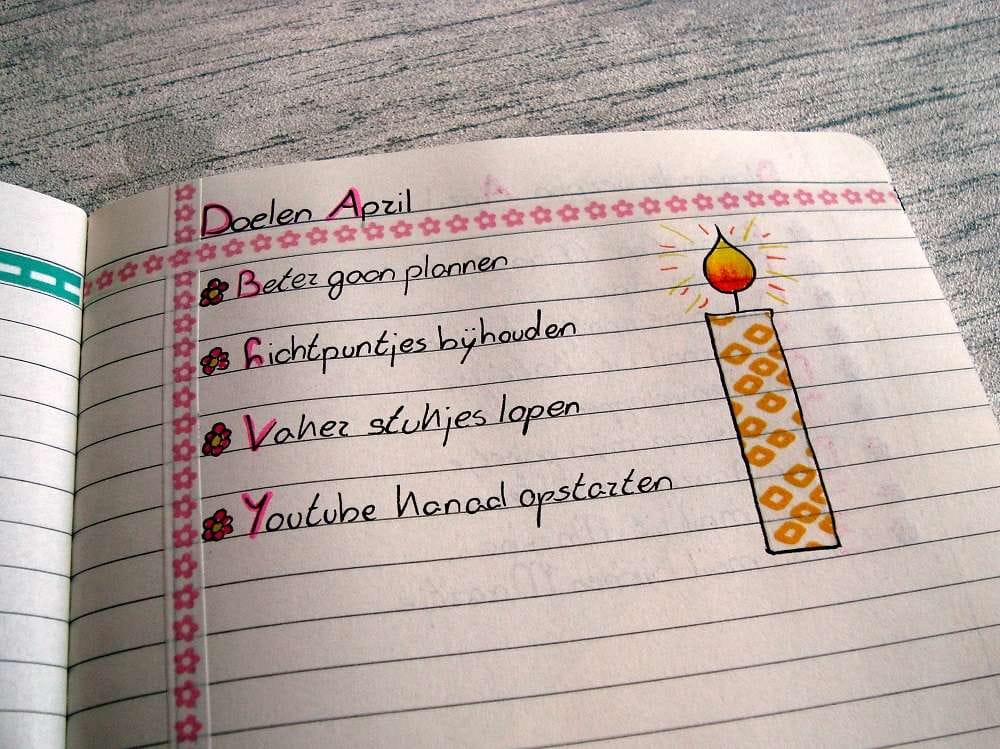 Doelen April
Beter gaan plannen
Lichtpuntjes bijhouden
Vaker stukjes lopen
Youtube kanaal opstarten